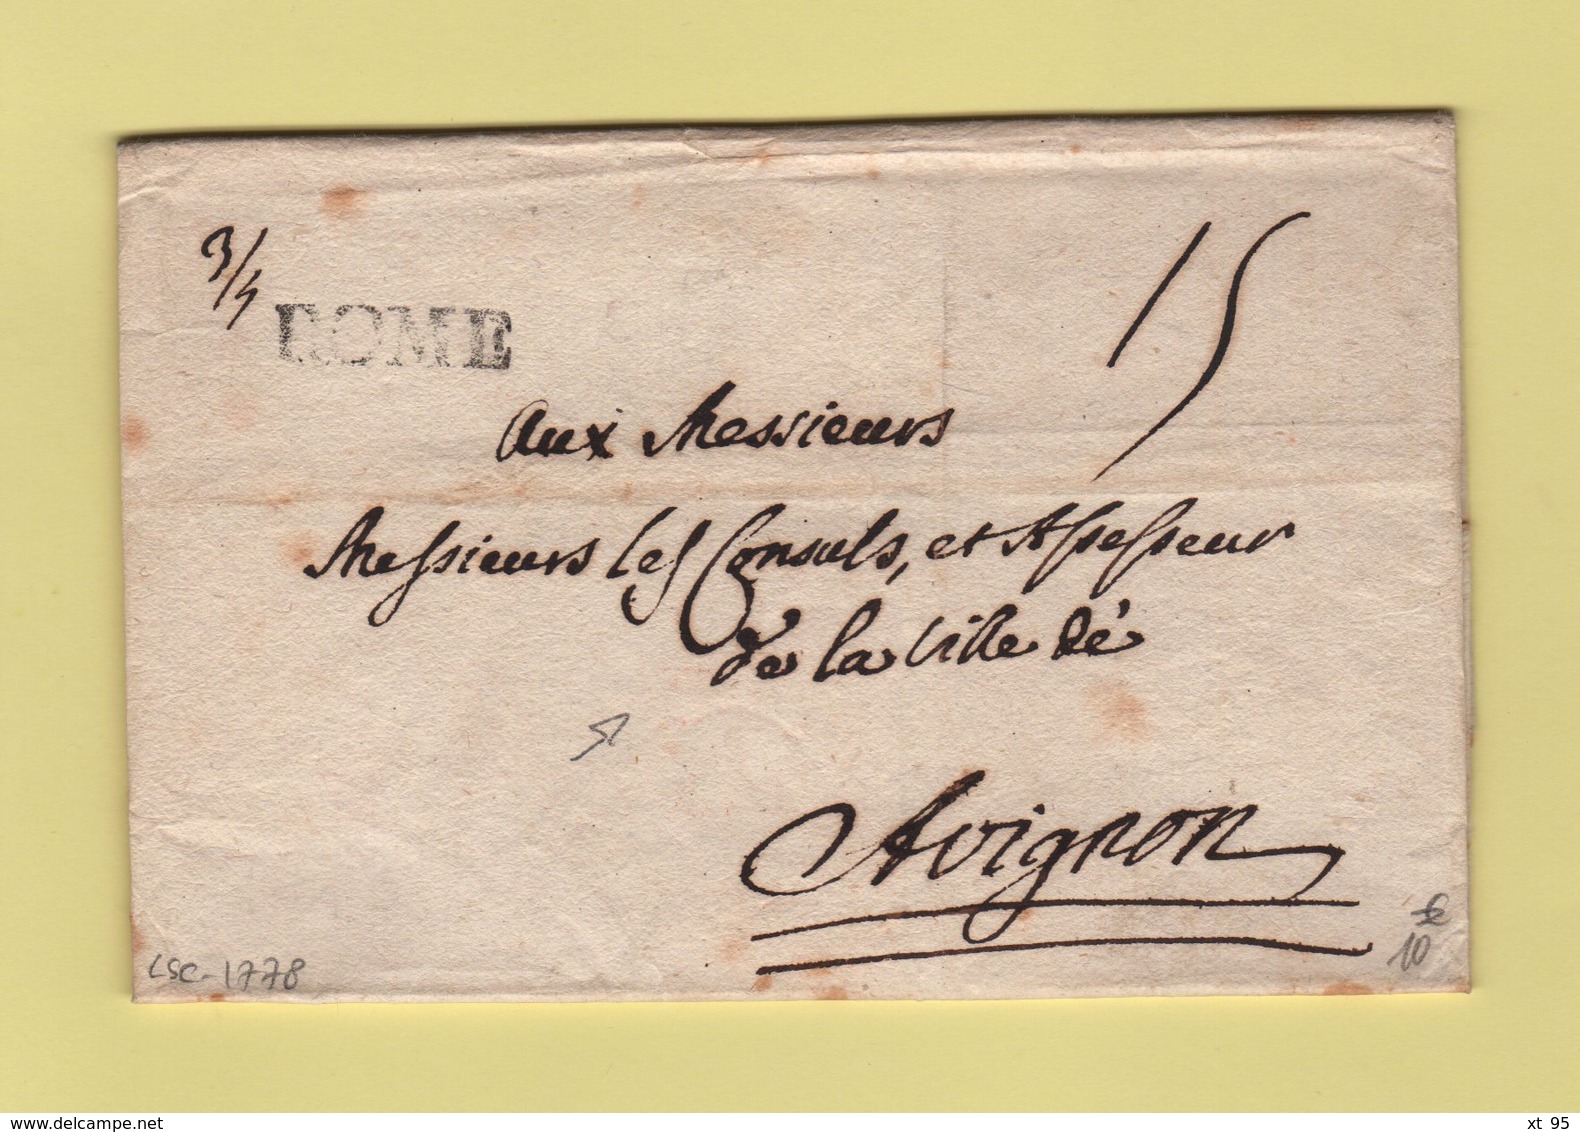 3/4
ROME
15
Aux Messieurs
Messieurs les Consuls, et Assesseur
de la Ville dé
Avignon
LSC-1778
10
www.delcampe.net
xt 95